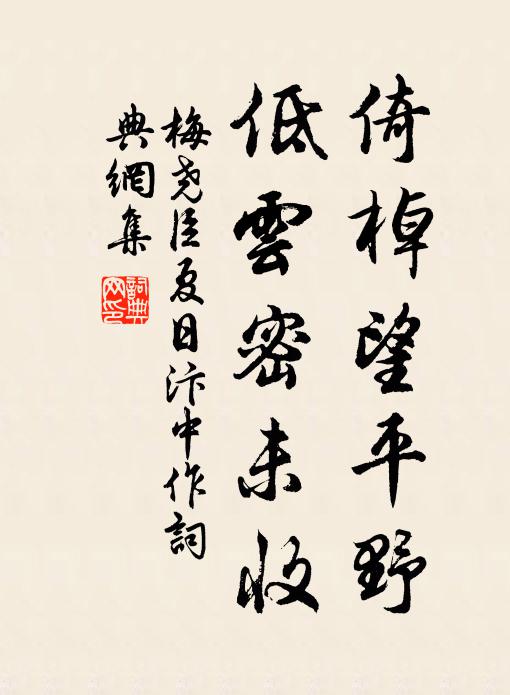 倚棹望平野
低雲密未收
梅尧臣夏日汴中作詞
典網集
詞典
网印